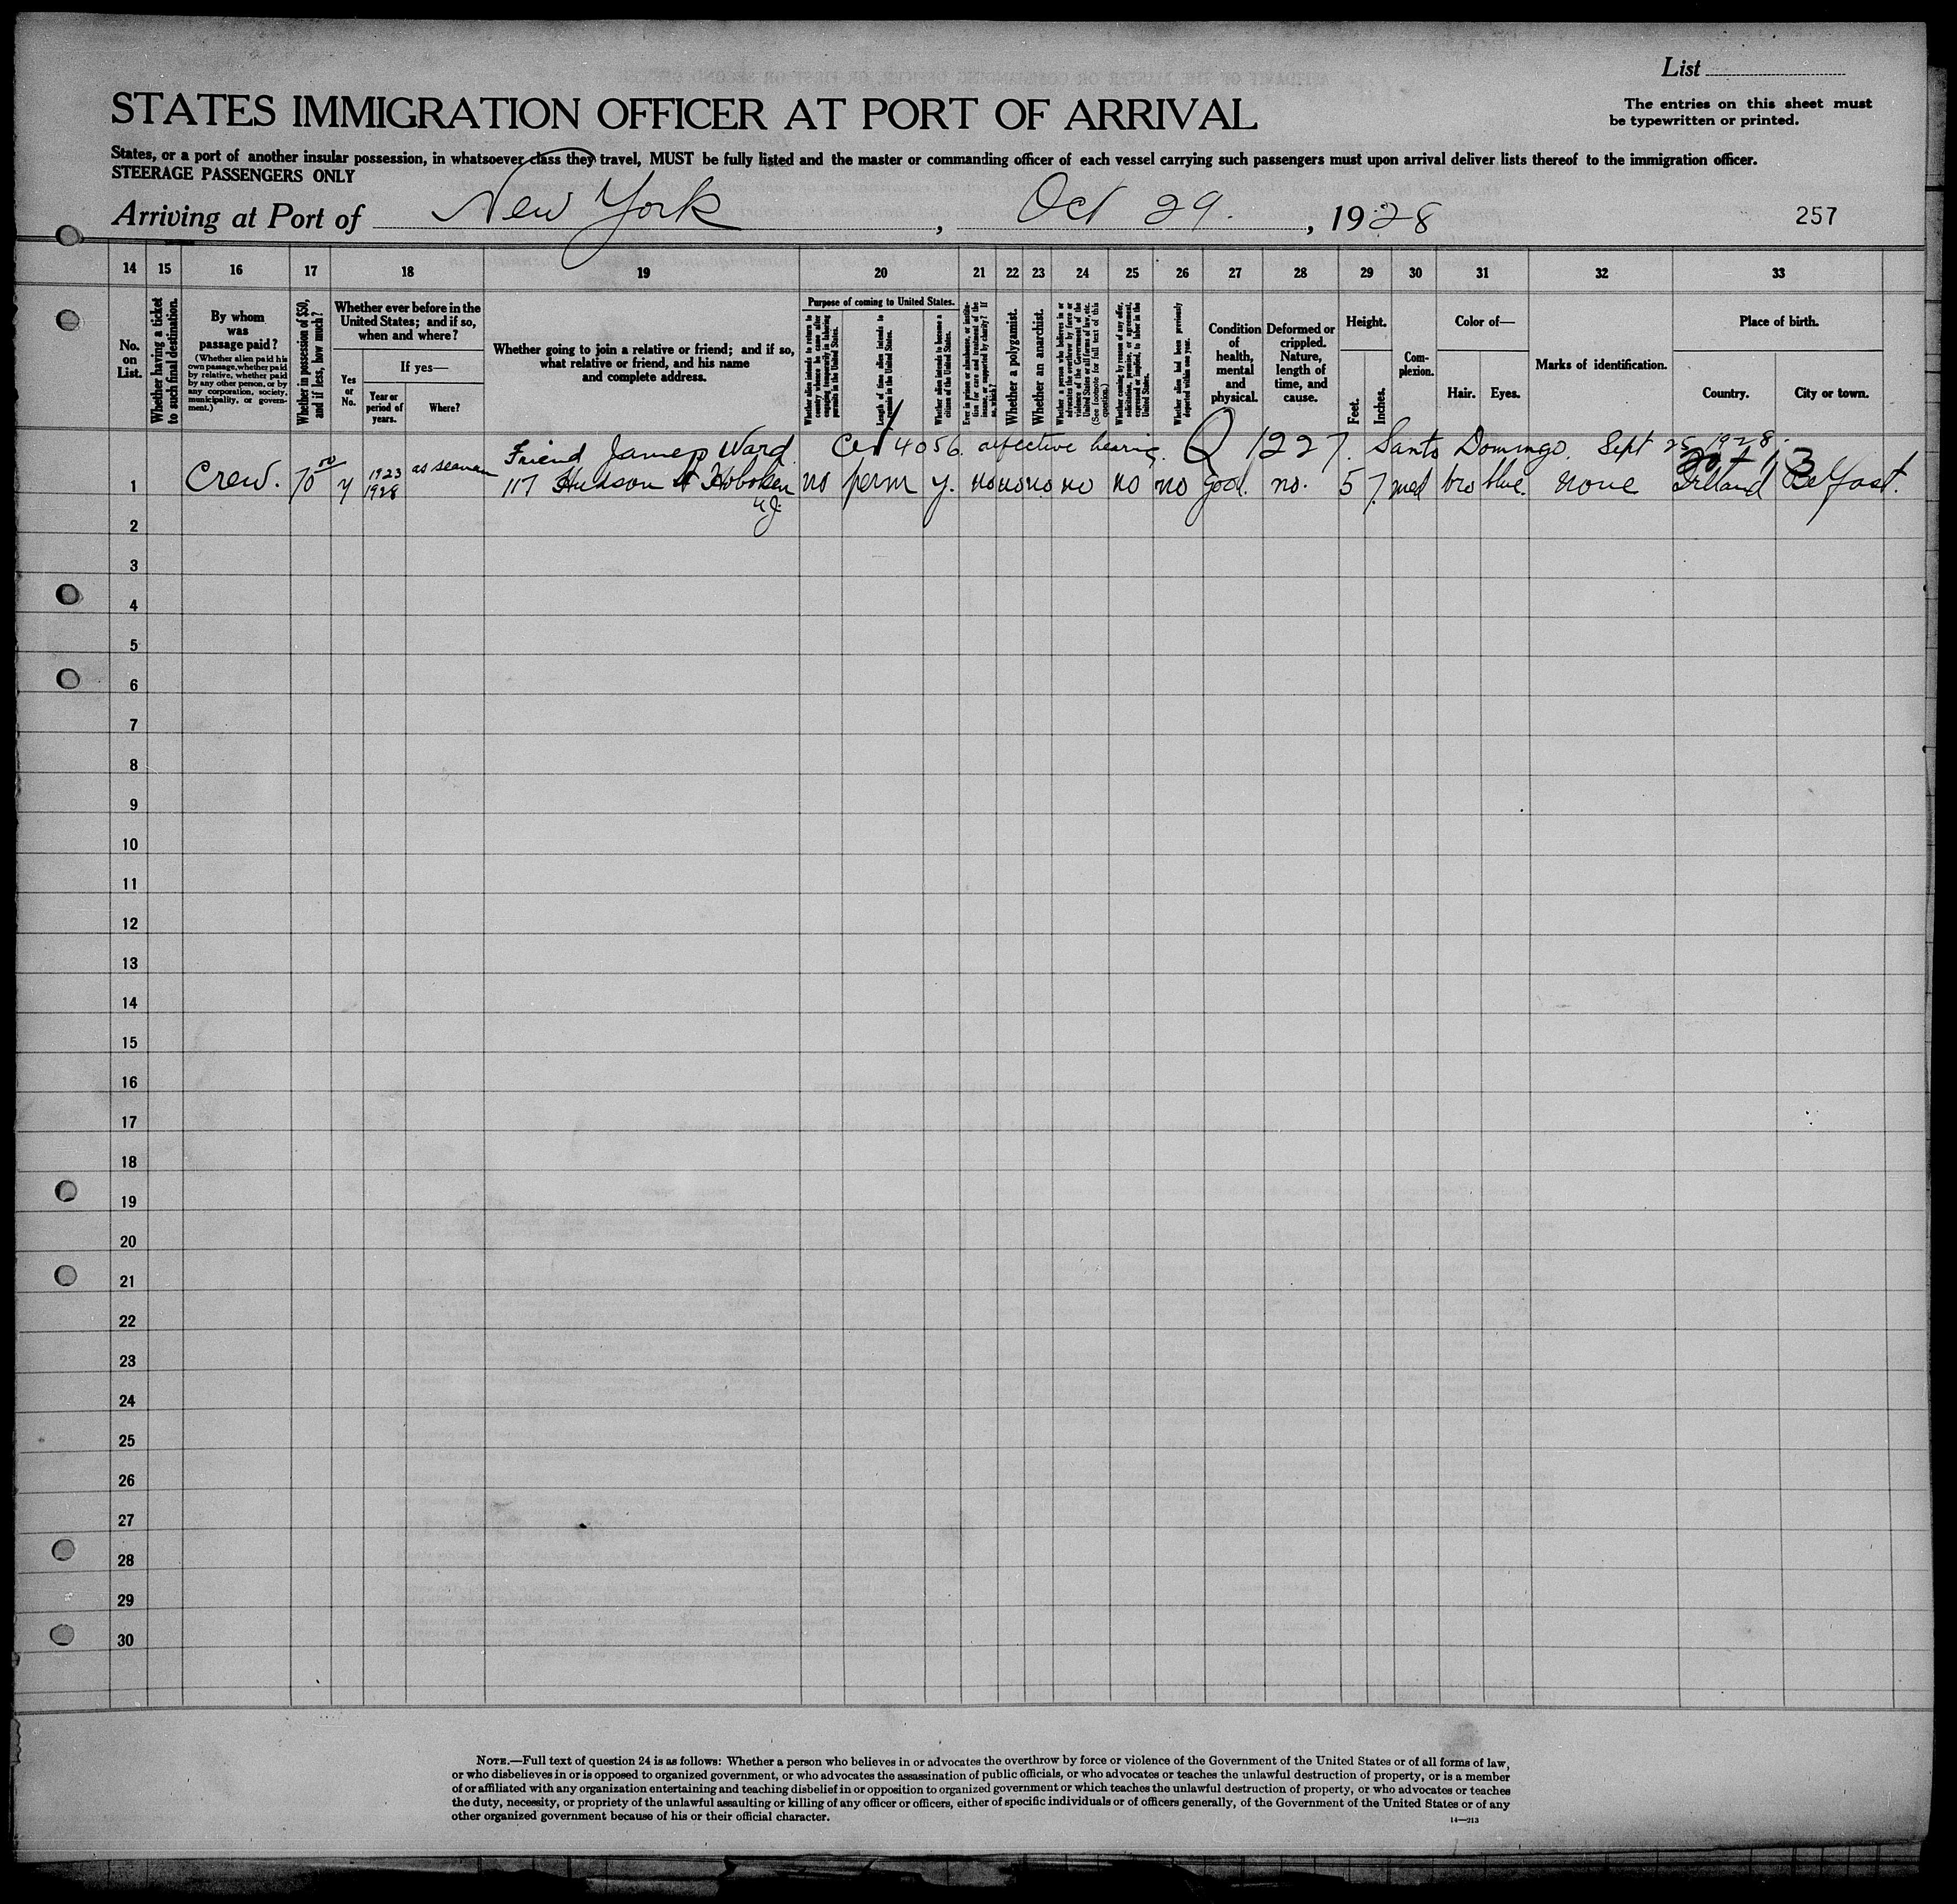 List
STATES IMMIGRATION OFFICER AT PORT OF ARRIVAL
The entries on this sheet must
be typewritten or printed.
States, or a port of another insular possession, in whatsoever class they travel, MUST be fully listed and the master or commanding officer of each vessel carrying such passengers must upon arrival deliver lists thereof to the immigration officer.
STEERAGE PASSENGERS ONLY
Arriving at Port of New York, Oct 29., 1928
257
14 15 16 17 18 19 20 21 22 23 24 25 26 27 28 29 30 31 32 33
No. on List.
Whether having a ticket to such final destination.
By whom was passage paid?
(Whether alien paid his own passage, whether paid by relative, whether paid by any other person, or by any corporation, society, municipality, or government.)
Whether in possession of $50, and if less, how much?
Whether ever before in the United States; and if so, when and where?
Yes or No.
If yes—
Year or period of years.
Where?
Whether going to join a relative or friend; and if so, what relative or friend, and his name and complete address.
Purpose of coming to United States.
Whether alien intends to return to country whence he came after engaging temporarily in laboring pursuits in the United States.
Length of time alien intends to remain in the United States.
Whether alien intends to become a citizen of the United States.
Ever in prison or almshouse, or institution for care and treatment of the insane, or supported by charity? If so, which?
Whether a polygamist.
Whether an anarchist.
Whether a person who believes in or advocates the overthrow by force or violence of the Government of the United States or all forms of law, etc. (See footnote for full text of this question.)
Whether coming by reason of any offer, solicitation, promise, or agreement, expressed or implied, to labor in the United States.
Whether alien had been previously deported within one year.
Condition of health, mental and physical.
Deformed or crippled. Nature, length of time, and cause.
Height.
Feet.
Inches.
Complexion.
Color of—
Hair. Eyes.
Marks of identification.
Place of birth.
Country.
City or town.
Friend James Ward 4056. hearing. Q 1227. Santo Domingo. Sept 25 1928.
1 Crew. 70 00 y 1923 1928 as seaman 117 Hudson St Hoboken no perm y. no no no no no no good. no. 5 7 med bro blue. none Ireland Belfast.
NJ
2
3
4
5
6
7
8
9
10
11
12
13
14
15
16
17
18
19
20
21
22
23
24
25
26
27
28
29
30
NOTE.—Full text of question 24 is as follows: Whether a person who believes in or advocates the overthrow by force or violence of the Government of the United States or of all forms of law,
or who disbelieves in or is opposed to organized government, or who advocates the assassination of public officials, or who advocates or teaches the unlawful destruction of property, or is a member
of or affiliated with any organization entertaining and teaching disbelief in or opposition to organized government or which teaches the unlawful destruction of property, or who advocates or teaches
the duty, necessity, or propriety of the unlawful assaulting or killing of any officer or officers, either of specific individuals or of officers generally, of the Government of the United States or of any
other organized government because of his or their official character.
14—213